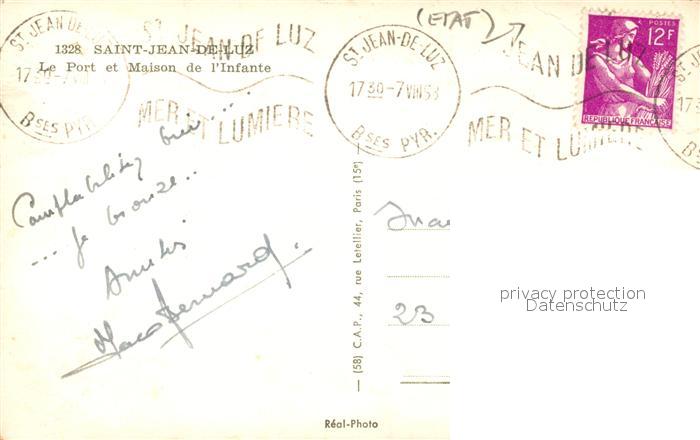 1328 SAINT-JEAN-DE-LUZ
Le Port et Maison de l'Infante
ST JEAN-DE-LUZ
17 30 -7
BSES PYR.
ST JEAN DE LUZ
MER ET LUMIERE
ST. JEAN-DE-LUZ
17 30 -7 VIII 58
BSES PYR.
(ETAT)
JEAN DE LUZ
MER ET LUMIERE
POSTES
12F
REPUBLIQUE FRANÇAISE
17 3
... je bronze..
Amitiés
23
(58) C.A.P., 44, rue Letellier, Paris (15e)
Réal-Photo
privacy protection
Datenschutz